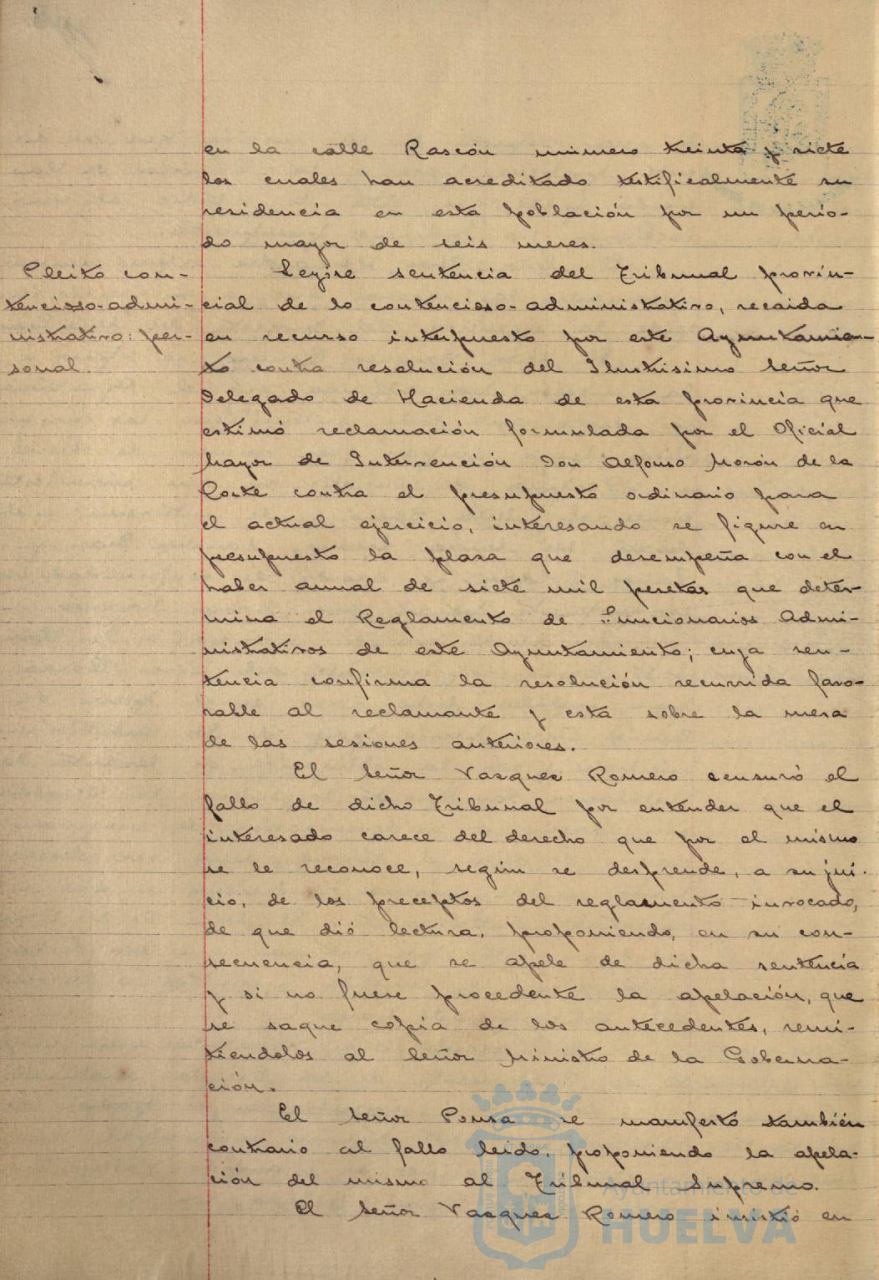 en la calle Rascón número treinta y siete
los cuales han acreditado testificalmente su
residencia en esta población por un perio-
do mayor de seis meses.
Pleito con-
tencioso-admi-
nistrativo: per-
sonal.
Leyóse sentencia del Tribunal provin-
cial de lo contencioso-administrativo, recaida
en recurso interpuesto por este Ayuntamien-
to contra resolución del Ilustrisimo Señor
Delegado de Hacienda de esta provincia que
estimó reclamación formulada por el Oficial
Mayor de Intervención Don Alfonso Morón de la
Corte contra el presupuesto ordinario para
el actual ejercicio, interesando se figure en
presupuesto la plaza que desempeña con el
haber anual de siete mil pesetas que deter-
mina el Reglamento de Funcionarios Admi-
nistrativos de este Ayuntamiento; cuya sen-
tencia confirma la resolución recurrida favo-
rable al reclamante y está sobre la mesa
de las sesiones anteriores.
El Señor Vazquez Romero censuró el
fallo de dicho Tribunal por entender que el
interesado carece del derecho que por el mismo
se le reconoce, según se desprende, a su jui-
cio, de los preceptos del reglamento invocado,
de que dió lectura, proponiendo, en su con-
secuencia, que se apele de dicha sentencia
y si no fuese procedente la apelación, que
se saque copia de los antecedentes, remi-
tiendolos al Señor Ministro de la Goberna-
ción.
El Señor Ponsa se manifestó también
contrario al fallo leido, proponiendo la apela-
ción del mismo al Tribunal Supremo.
El Señor Vazquez Romero insistió en
Ayuntamiento de
HUELVA